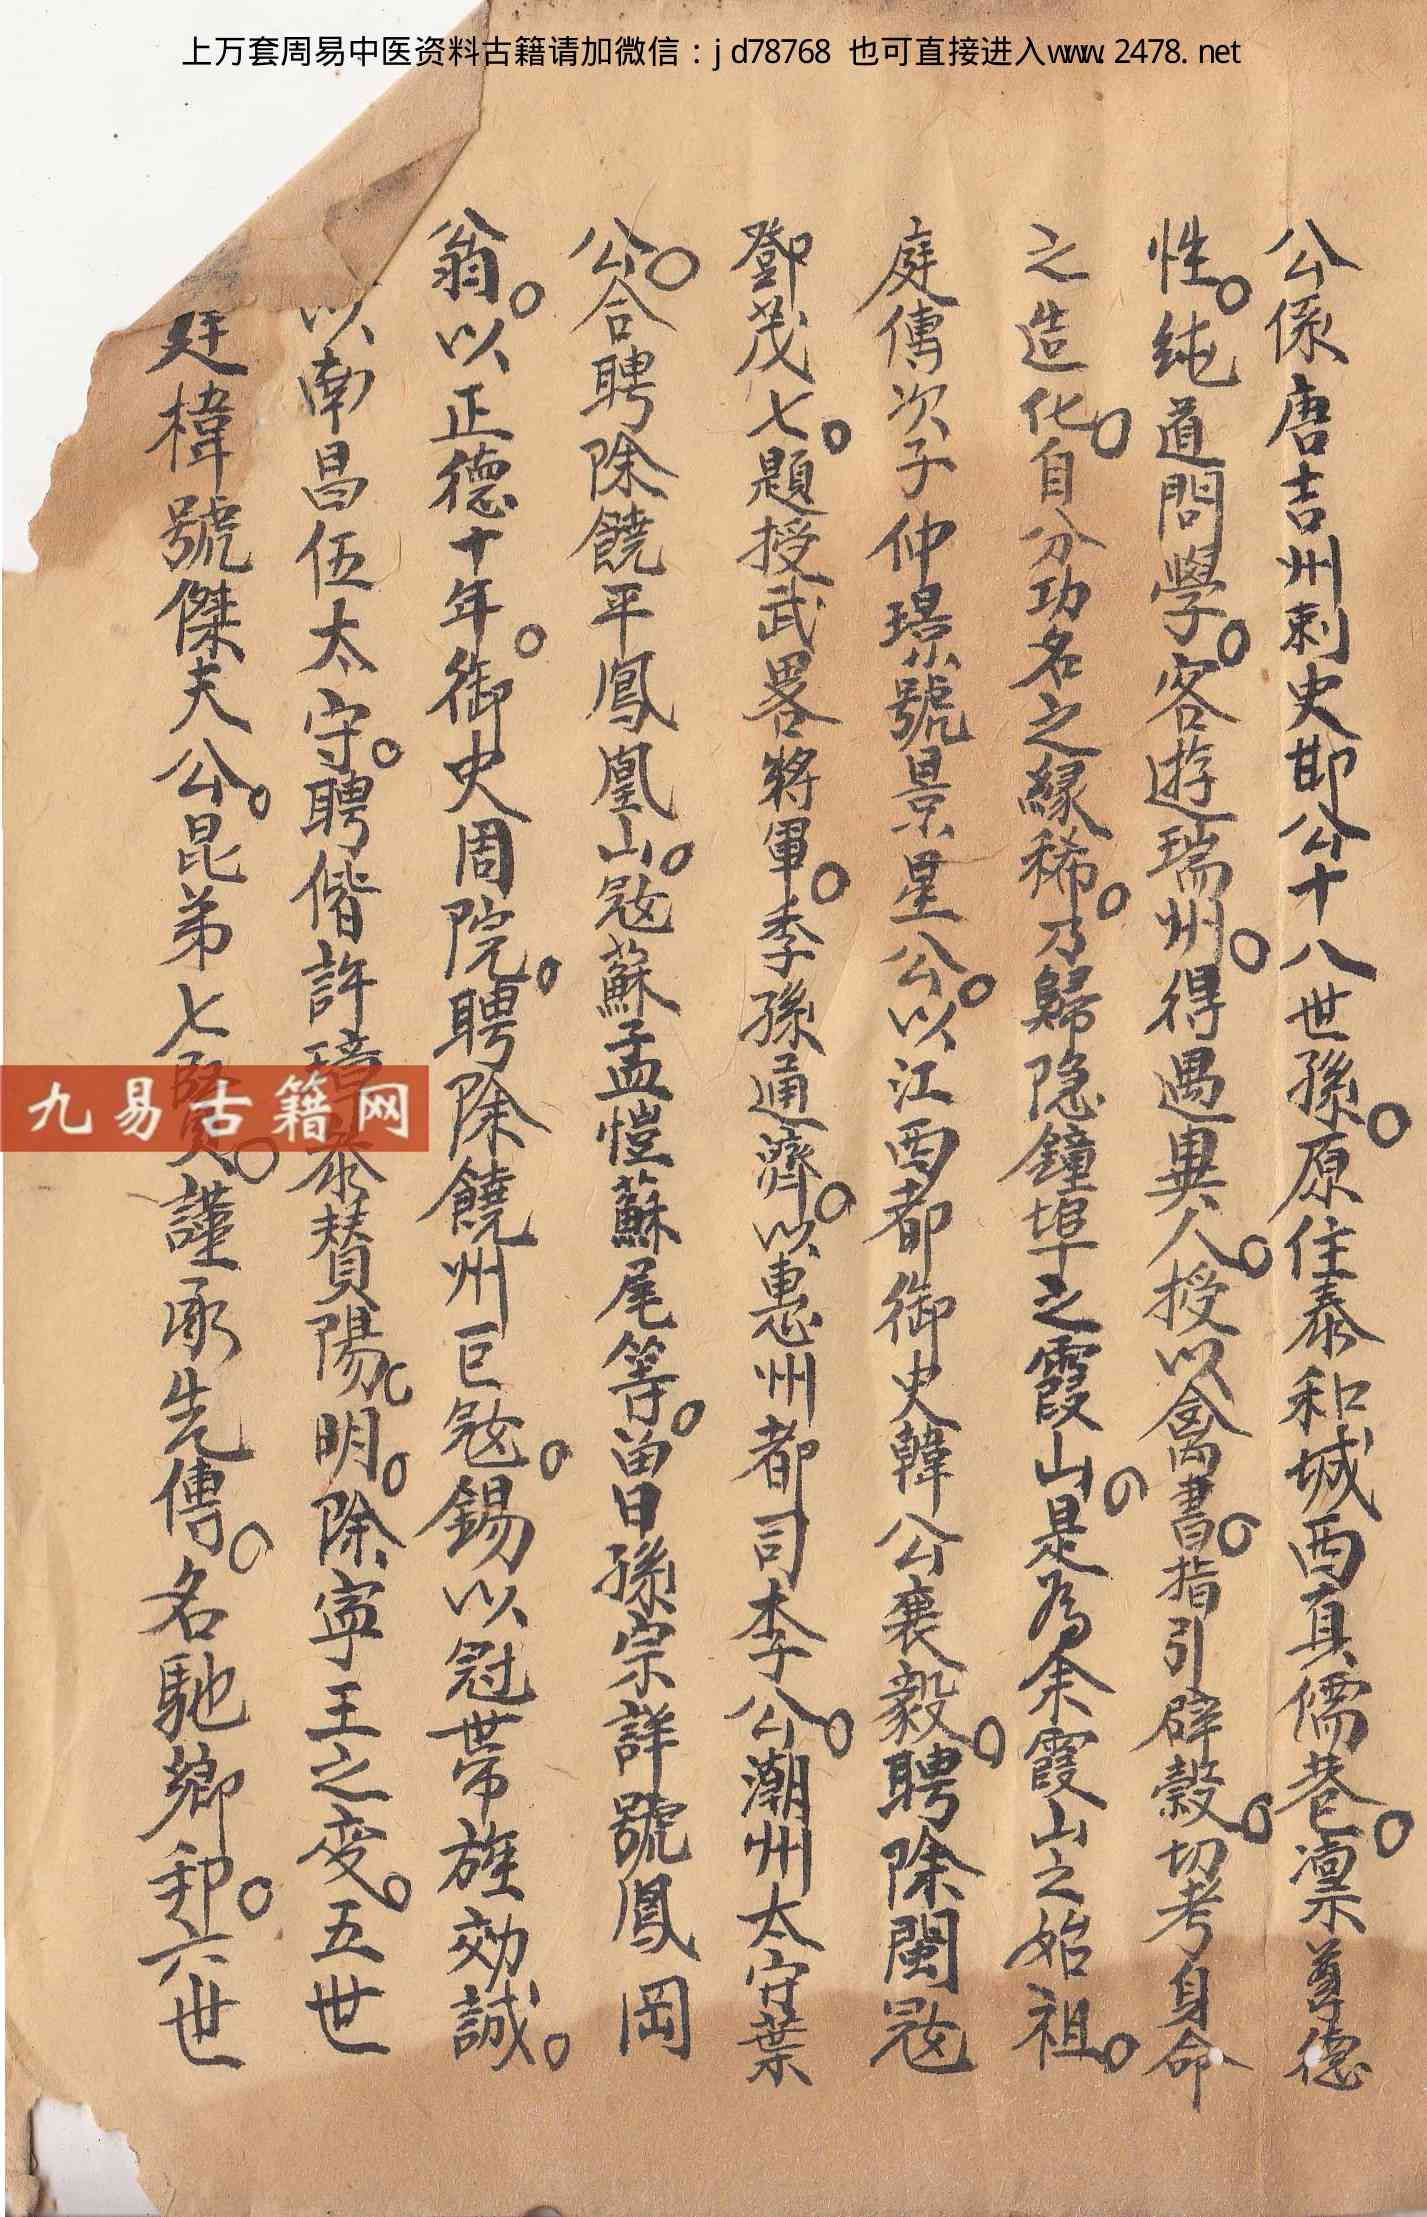 上万套周易中医资料古籍请加微信：jd78768 也可直接进入www.2478.net
公係唐吉州刺史邯公十八世孫。原住泰和城西真儒巷。凛尊德
性。純道問學。客遊瑞州。得遇異人。授以禽書。指引辟穀。切考身命
之造化。自分功名之緣稀。乃歸隐鐘埠之霞山。是為余霞山之始祖。
庭傳次子仲璟號景星公。以江西都御史韓公襄毅。聘除閩冦
鄧茂七。題授武畧將軍。季孫通濟。以惠州都司李公。潮州太守葉
公。合聘除饒平鳳凰山。冦蘇孟愷蘇尾等。畱曰孫宗詳號鳳岡
翁。以正德十年。御史周院。聘除饒州巨冦。錫以冠帯旌効誠。
以南昌伍太守。聘偕許璋泰賛陽明。除寧王之变。五世
廷椲號傑夫公。昆弟七賢。謹承先傳。名馳鄉邦。六世
九易古籍网